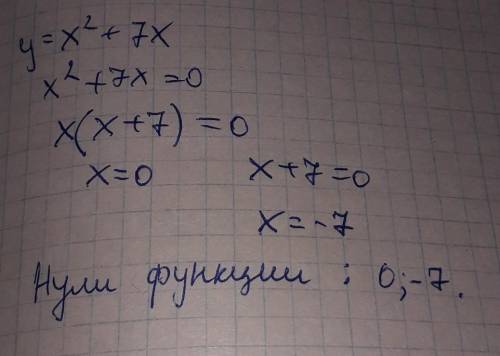 y = x² + 7x
x² + 7x = 0
x(x + 7) = 0
x = 0 x + 7 = 0
x = -7
Нули функции : 0; -7.